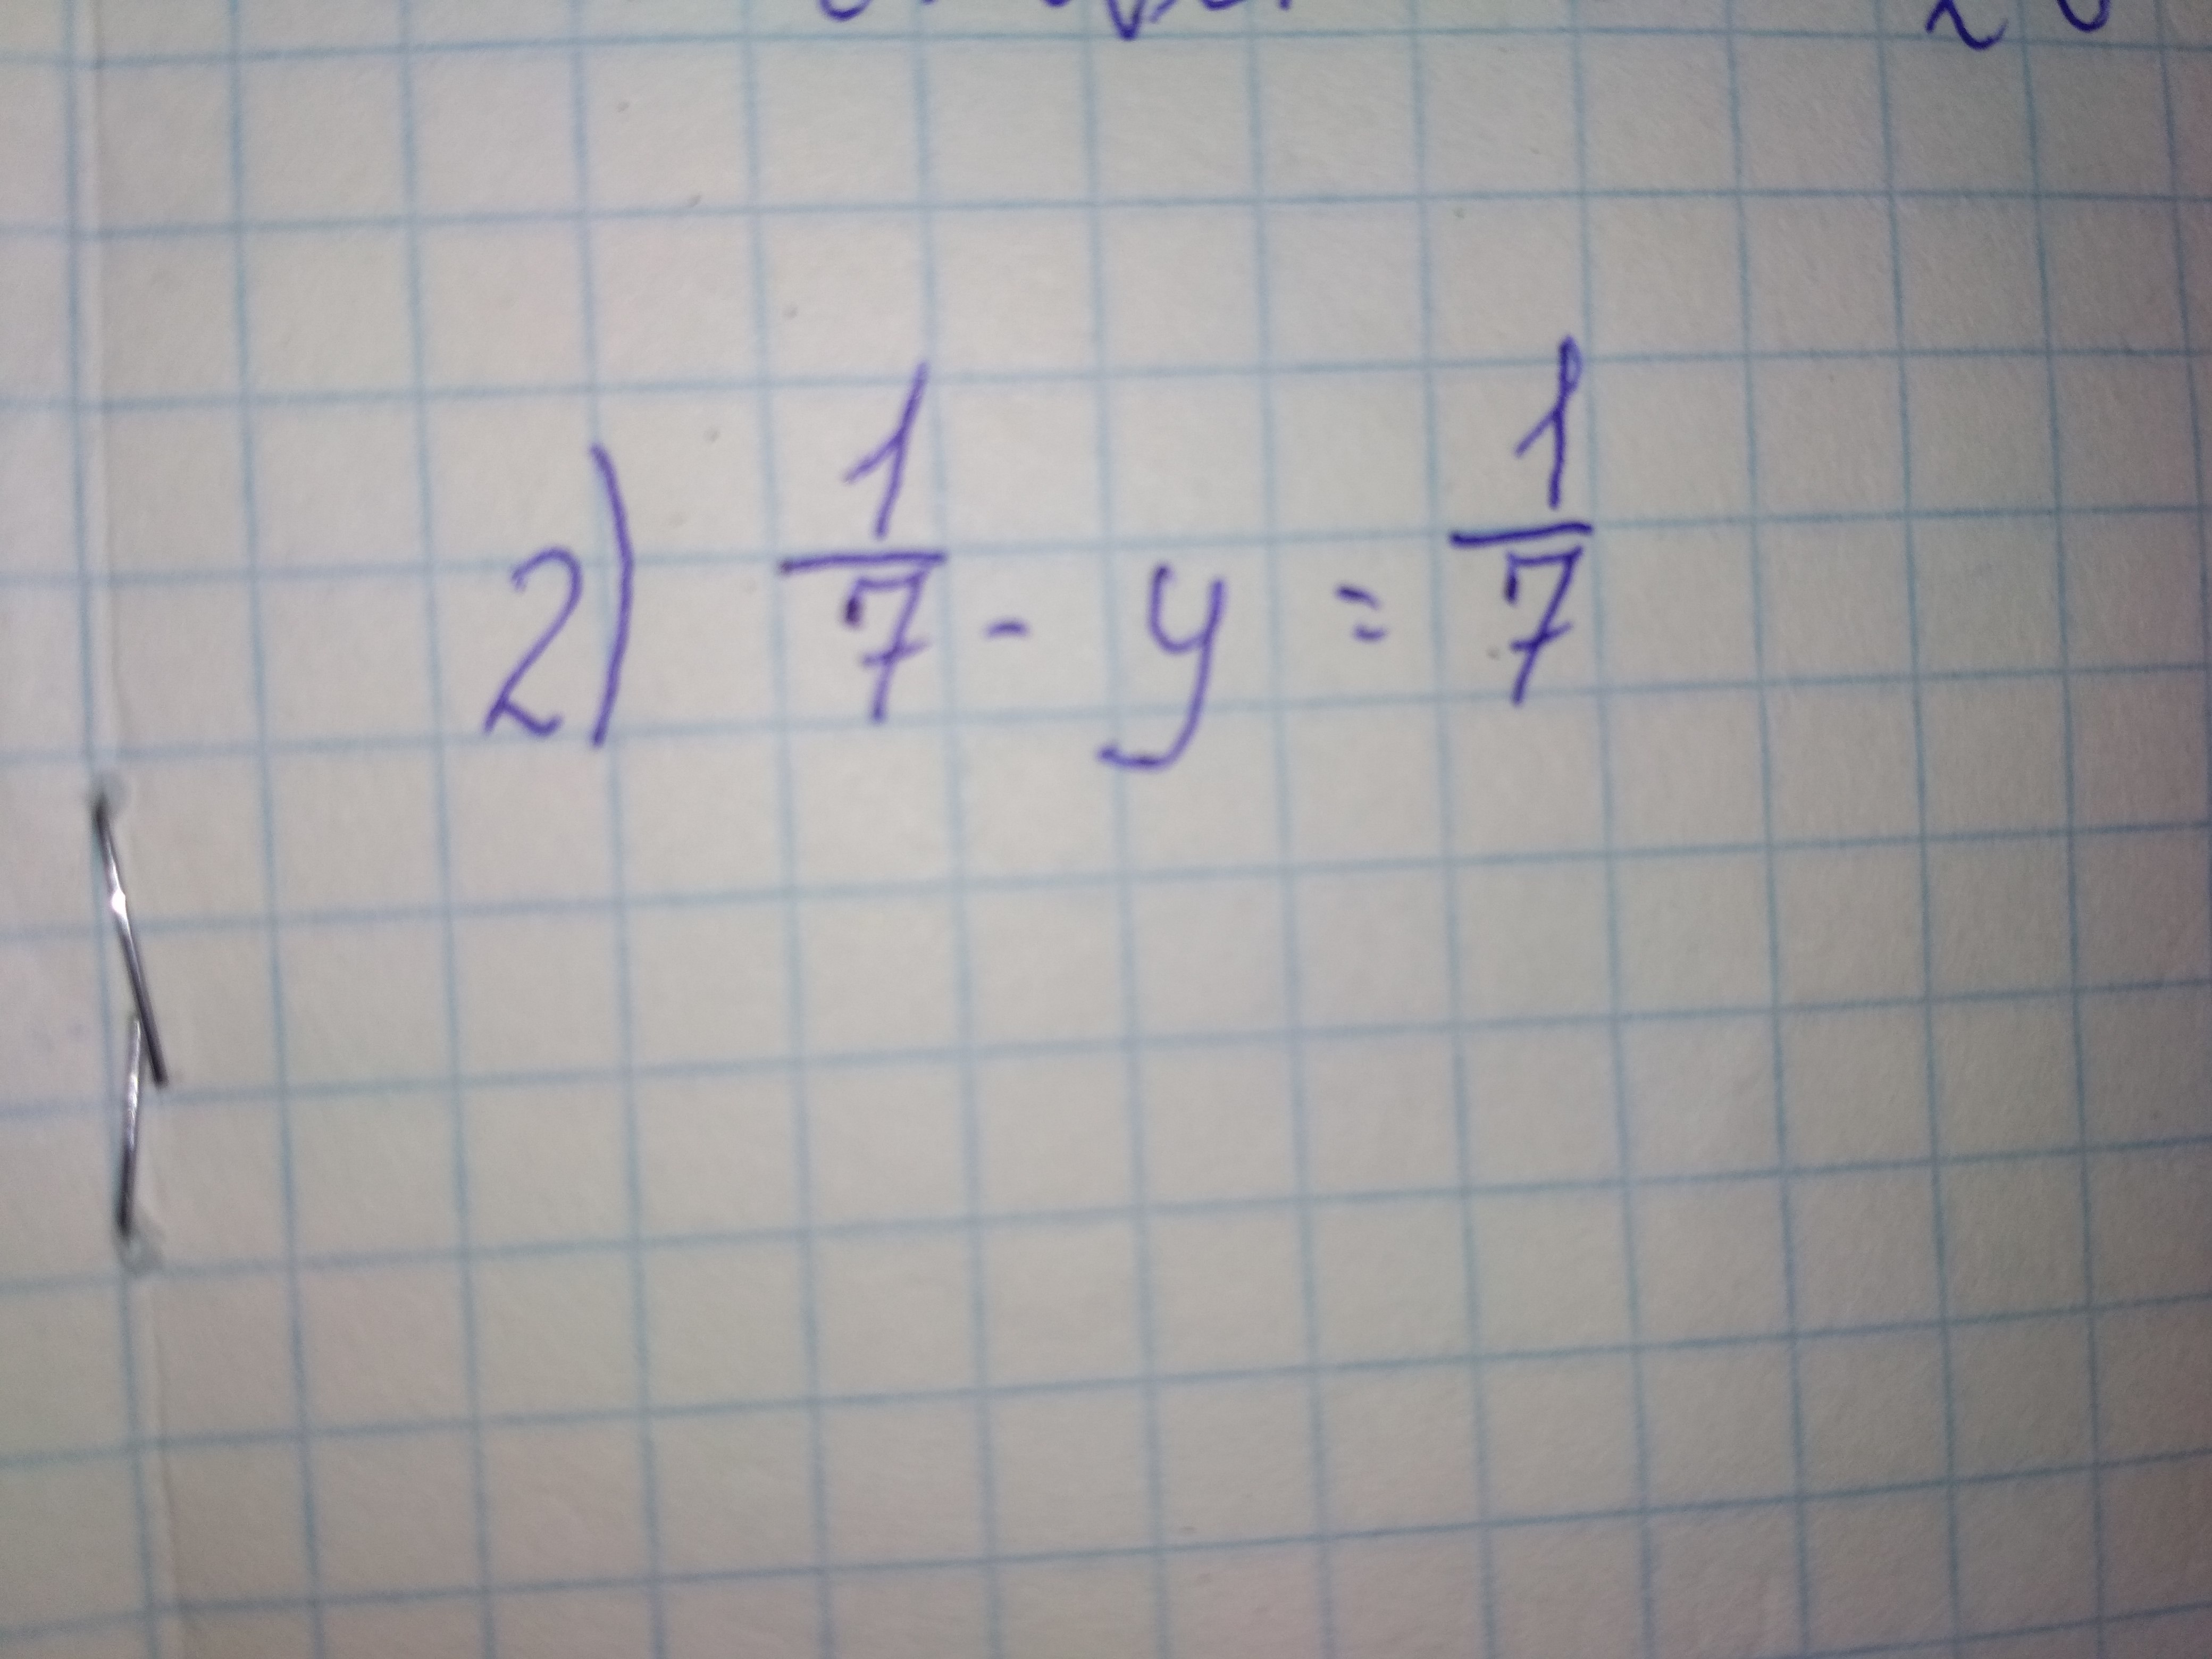 2) 1/7 - y = 1/7